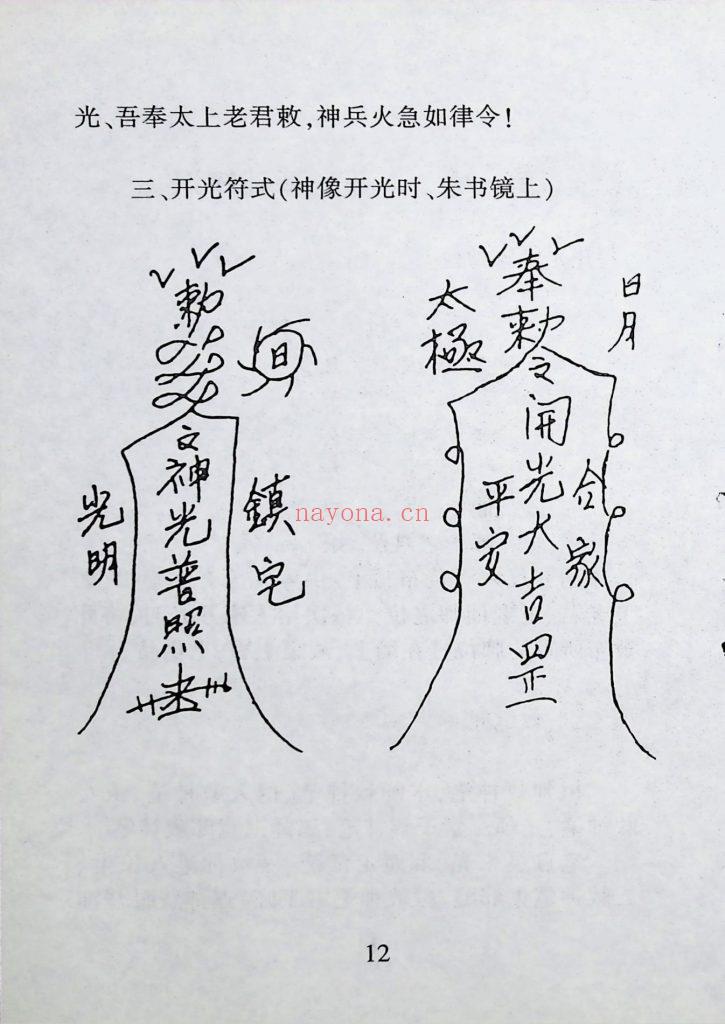 光、吾奉太上老君敕,神兵火急如律令!
三、开光符式(神像开光时、朱书镜上)
敕
日
神光普照
光明
鎮宅
奉敕令
太極
日月
開光大吉罡
平安
合家
nayona.cn
12